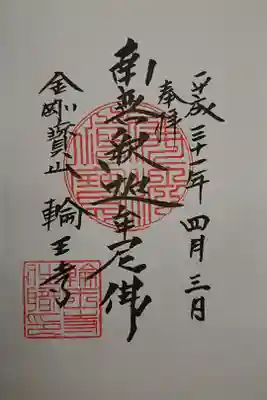 平成三十一年四月三日
奉拝
南無釈迦牟尼佛
金剛寶山輪王寺